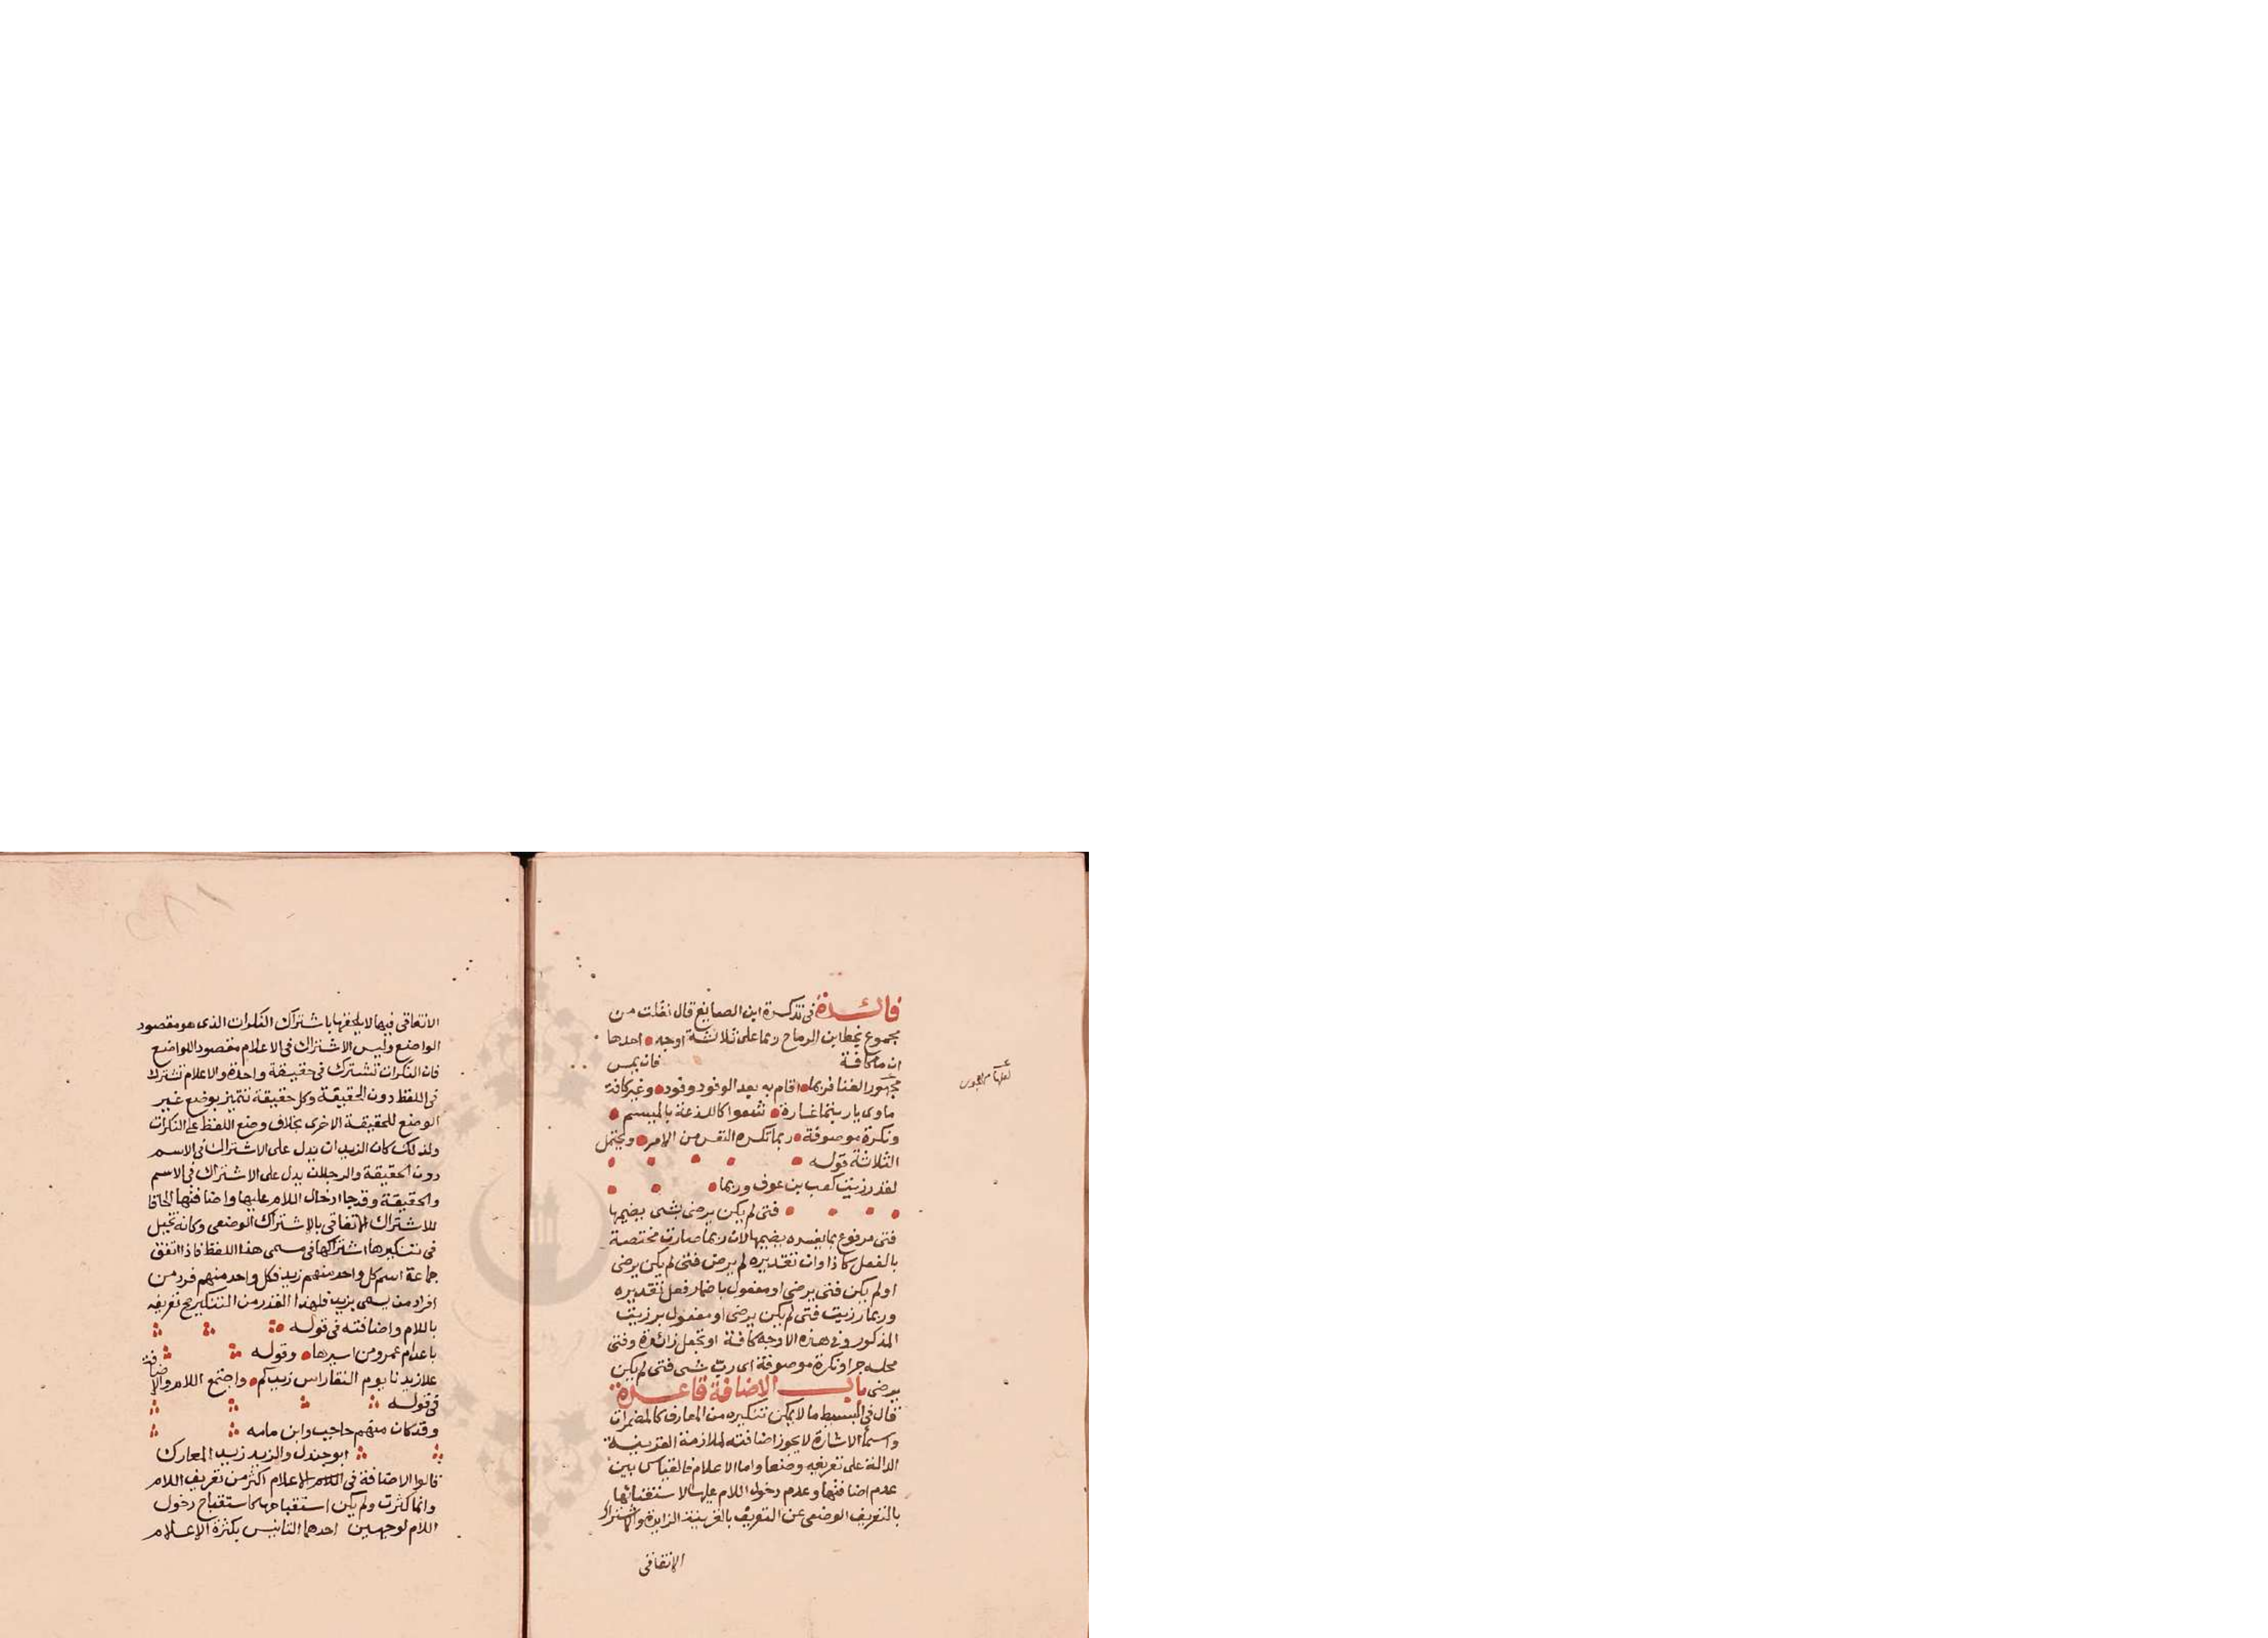 فائدة في تذكرة ابن الصايغ قال نقلت من
مجموع بخط ابن الرماح ربما على ثلاثة اوجه احدها
ان ما كافة فان يمس
مجهور الفنا فربما اقام به بعد الوفود وفود وغير كافة
ماوى يا ربتما غارة شعوا كاللذعة بالميسم
ونكرة موصوفة ربما تكره النفس من الامر ويحتمل
الثلاثة قوله
لقد رزيت كعب بن عوف وربما
فتى لم يكن يرضى بشى يضيمها
فتى مرفوع بما يفسره يضيمها لان ربما صارت مختصة
بالفعل كاذا وان تقديره لم يرض فتى لم يكن يرضى
او لم يكن فتى يرضى او مفعول باضمار فعل تقديره
وربما رزيت فتى لم يكن يرضى او مفعول برزيت
المذكور وفي هذه الاوجه كافة او تجعل زائدة وفتى
محله جر او نكرة موصوفة اى رب شى فتى لم يكن
يرضى باب الاضافة قاعدة
قال في البسيط ما لا يمكن تنكيره من المعارف كالمضمرات
واسما الاشارة لا يجوز اضافته لملازمة القرينة
الدالة على تعريفه وضعا واما الاعلام فالقياس بين
عدم اضافتها وعدم دخول اللام عليها لاستغنائها
بالتعريف الوضعى عن التعريف بالقرينة الزايدة والاشتراك
الاتفاقى
الاتفاقى فيها لا يلحقها باشتراك النكرات الذى هو مقصود
الواضع وليس الاشتراك في الاعلام مقصود اللواضع
فان النكرات تشترك في حقيقة واحدة والاعلام تشترك
في اللفظ دون الحقيقة وكل حقيقة تتميز بوضع غير
الوضع للحقيقة الاخرى بخلاف وضع اللفظ على النكرات
ولذلك كان الزيدان يدل على الاشتراك في الاسم
دون الحقيقة والرجلان يدل على الاشتراك في الاسم
والحقيقة وقد جا ادخال اللام عليها واضافتها الحاقا
للاشتراك الاتفاقى بالاشتراك الوضعى وكانه تخيل
في تنكيرها اشتراكها في مسمى هذا اللفظ فاذا اتفق
جماعة اسم كل واحد منهم زيد فكل واحد منهم فرد من
افراد من يسمى بزيد فلهذا القدر من التنكير صح تعريفه
باللام واضافته في قوله
باعدام عمرو من اسيرها وقوله
علا زيدنا يوم النقا راس زيدكم واجتمع اللام والاضافة
في قوله
وقد كان منهم حاجب وابن مامه
ابو جندل والزيد زيد المعارك
قالوا الاضافة في الاعلام اكثر من تعريف اللام
وانما كثرت ولم يكن استقباحها كاستقباح دخول
اللام لوجهين احدهما التانيس بكثرة الاعلام